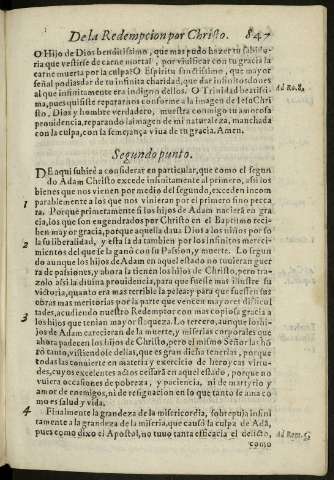 De la Redempcion por Christo. 847
O Hijo de Dios benditissimo, que mas pudo hazer tu sabidu-
ria que vestirse de carne mortal, por viuificar con tu gracia la
carne muerta por la culpa? O Espiritu sanctissimo, que mayor
señal podias dar de tu infinita charidad, que dar infinitos dones
al que infinitamente era indigno dellos. O Trinidad beatissi-
Ad Ro. 8.
ma, pues quisiste repararnos conforme a la imagen de Iesu Chri
sto, Dios y hombre verdadero, muestra conmigo tu amorosa
prouidencia, reparando la imagen de mi naturaleza, manchada
con la culpa, con la semejança viua de tu gracia. Amen.
Segundo punto.
DE aqui subirè a considerar en particular, que como el segun
do Adam Christo excede infinitamente al primero, assi los
bienes que nos vienen por medio del segundo, exceden incom
1 parablemente a los que nos vinieran por el primero sino pecca
ra. Porque primeramente si los hijos de Adam nacierã en gra
cia, los que son engendrados por Christo en el Baptismo reci-
ben mayor gracia, porque aquella daua Dios a los niños por so
2 la su liberalidad, y esta la da tambien por los infinitos mereci-
mientos del que se la ganò con su Passion, y muerte. Lo segun
do aunque los hijos de Adam en aquel estado no tuuieran guer
ra de passiones, y ahora la tienen los hijos de Christo, pero tra-
zolo assi la diuina prouidencia, para que fuesse mas illustre su
victoria, quanto era mas terrible la pelea: y para que fuessen sus
obras mas meritorias por la parte que vencen mayores difficul
3 tades, acudiendo nuestro Redemptor con mas copiosa gracia a
los hijos que tenian mayor flaqueza. Lo tercero, aunque los hi-
jos de Adam carecieran de la muerte, y miserias corporales que
ahora padecen los hijos de Christo, pero el mismo Señor las hõ
rò tanto, vistiendose dellas, que es gran dicha tenerlas, porque
todas las conuierte en materia y exercicio de heroycas virtu-
des, cuyos excelentes actos cessarã en aquel estado, porque no
vuiera occasiones de pobreza, y paciencia, ni de martyrio y
amor de enemigos, ni de resignacion en lo que tanto se ama co
mo es salud y vida.
4 Finalmente la grandeza de la misericordia, sobrepuja infini
tamente a la grandeza de la miseria, que causò la culpa de Adã,
pues como dixo el Apostol, no tuuo tanta efficacia el delicto, Ad Rom. 5.
como